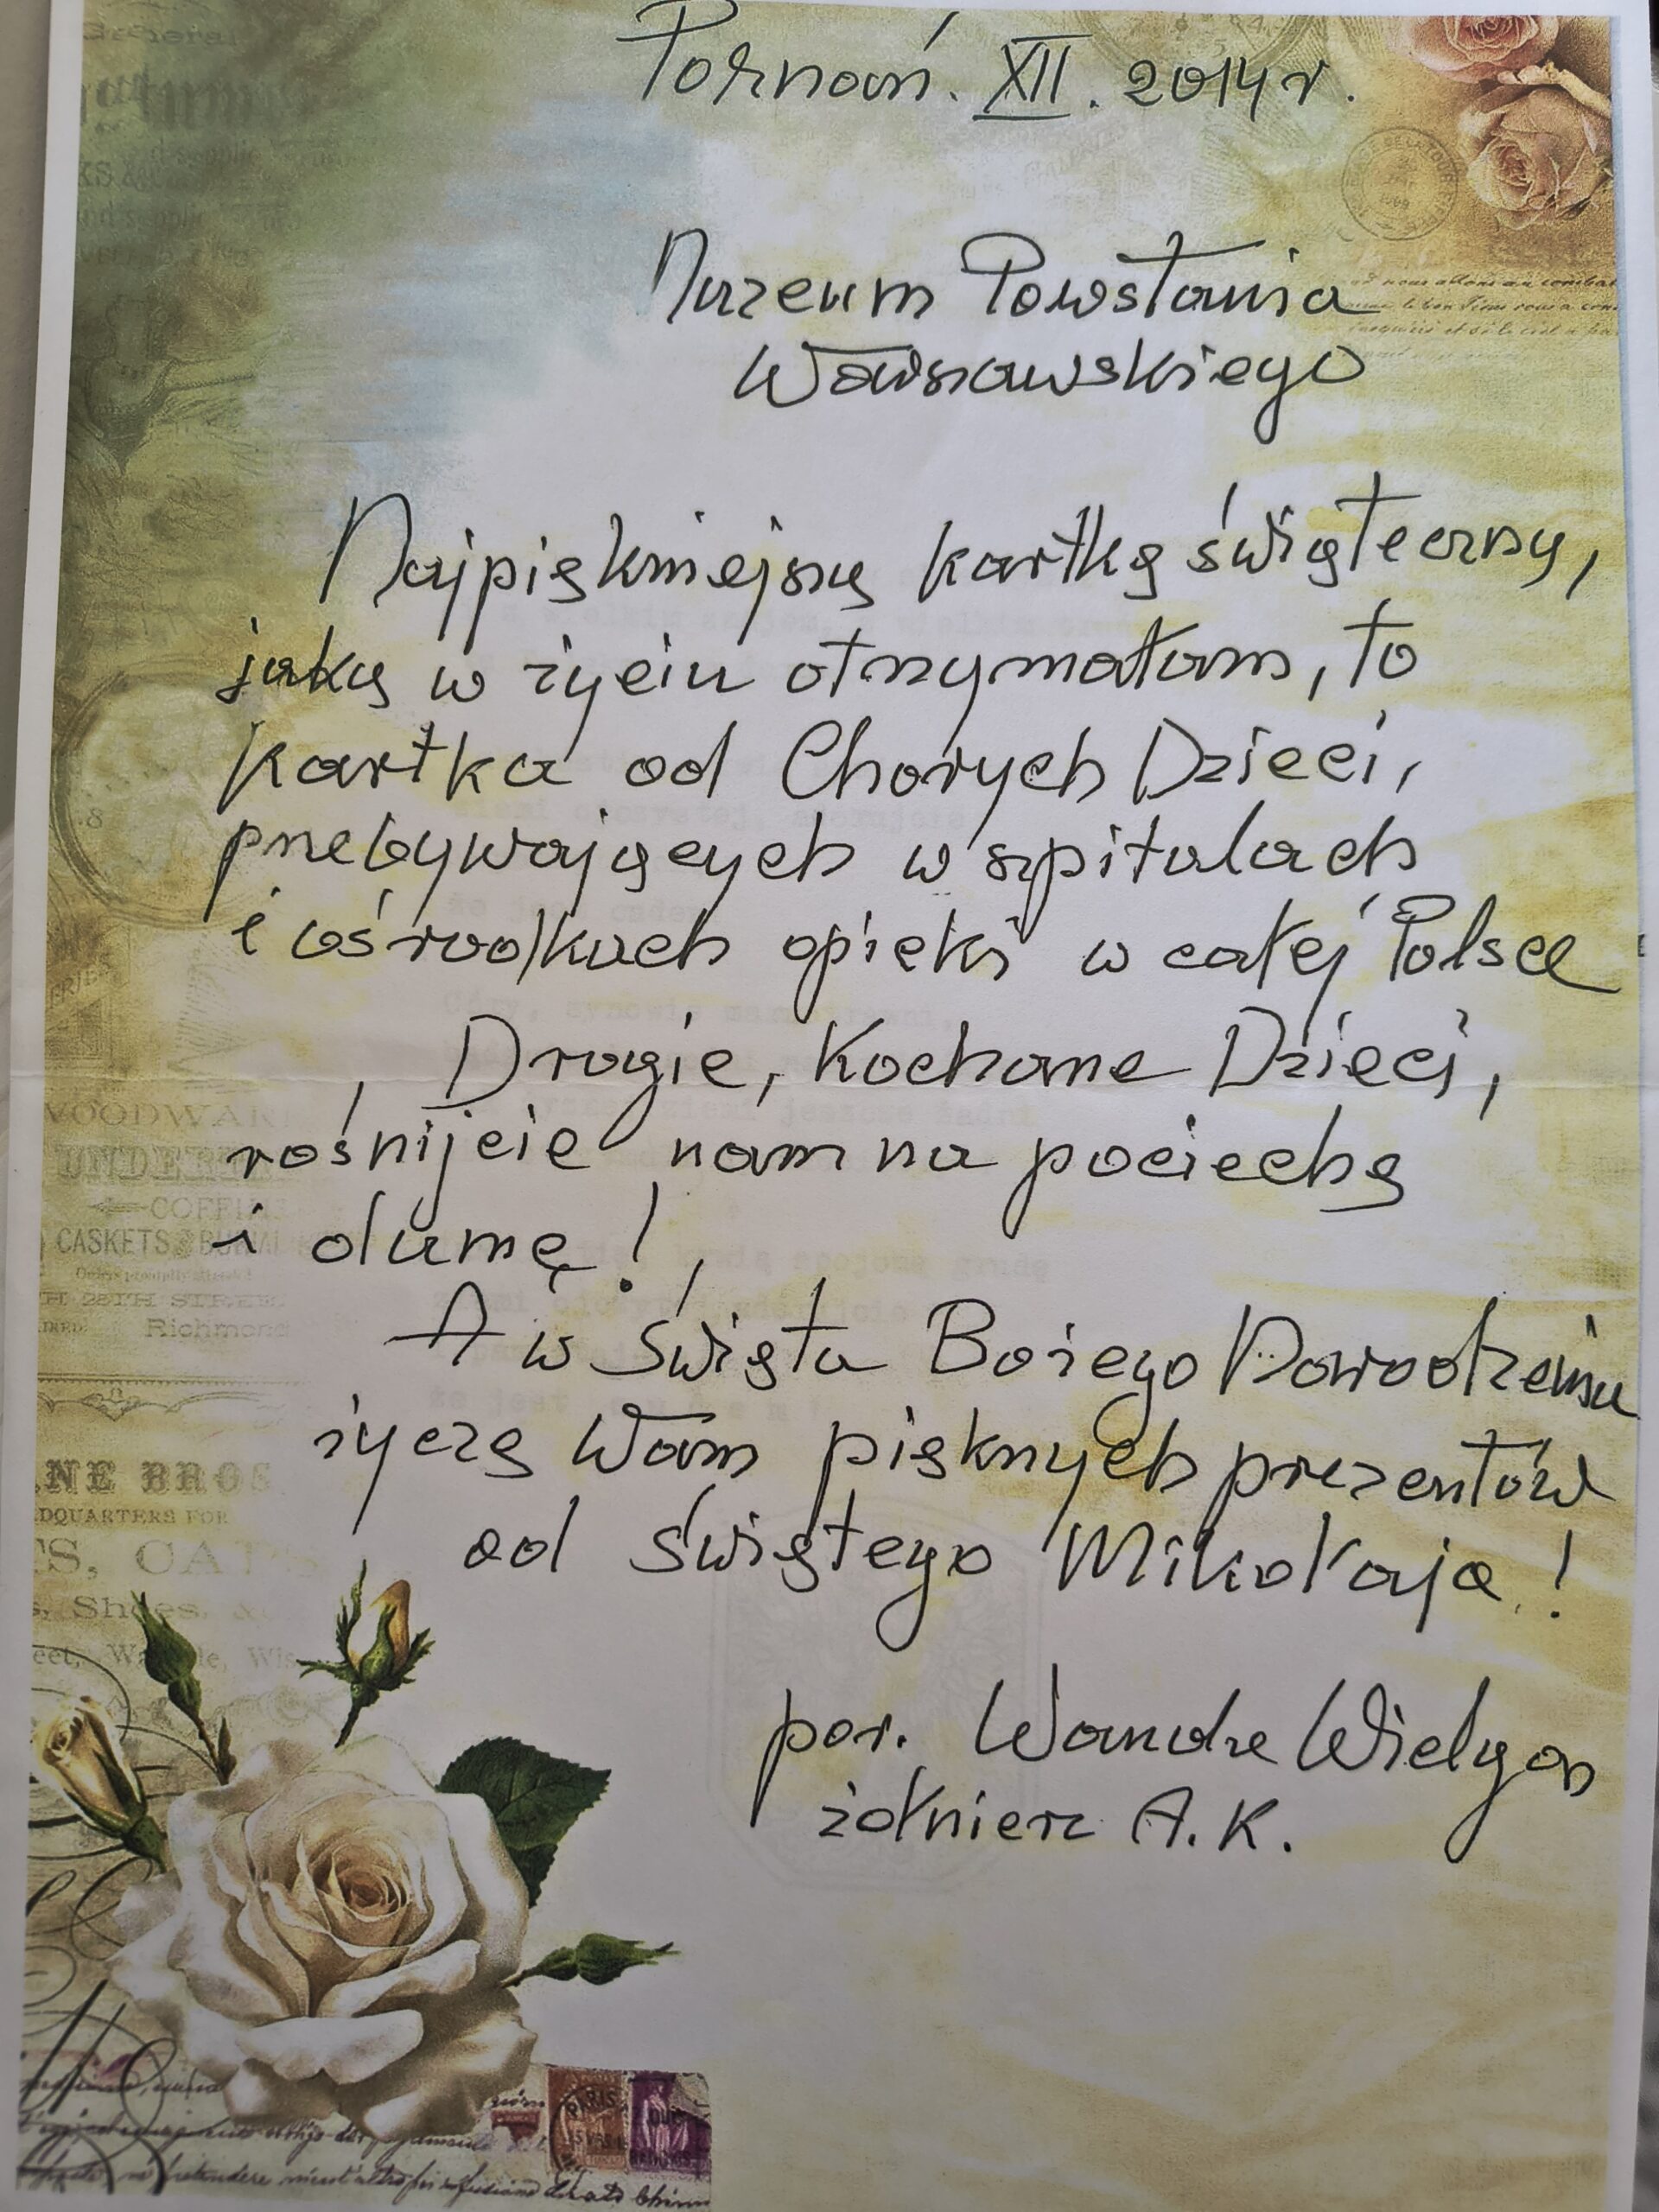 Poznań. XII. 2014 r.
Muzeum Powstania
Warszawskiego
Najpiękniejszą kartką świąteczną,
jaką w życiu otrzymałam, to
kartka od Chorych Dzieci,
przebywających w szpitalach
i ośrodkach opieki w całej Polsce
Drogie, Kochane Dzieci,
rośnijcie nam na pociechę
i dumę!
A w Święta Bożego Narodzenia
życzę Wam pięknych prezentów
od Świętego Mikołaja!
por. Wanda Wielgos
żołnierz A.K.
VOODWAR
COFFIN
CASKETS & BURIAL
28TH STREE
Richmond
NE BROS
DQUARTERS FOR
PARIS